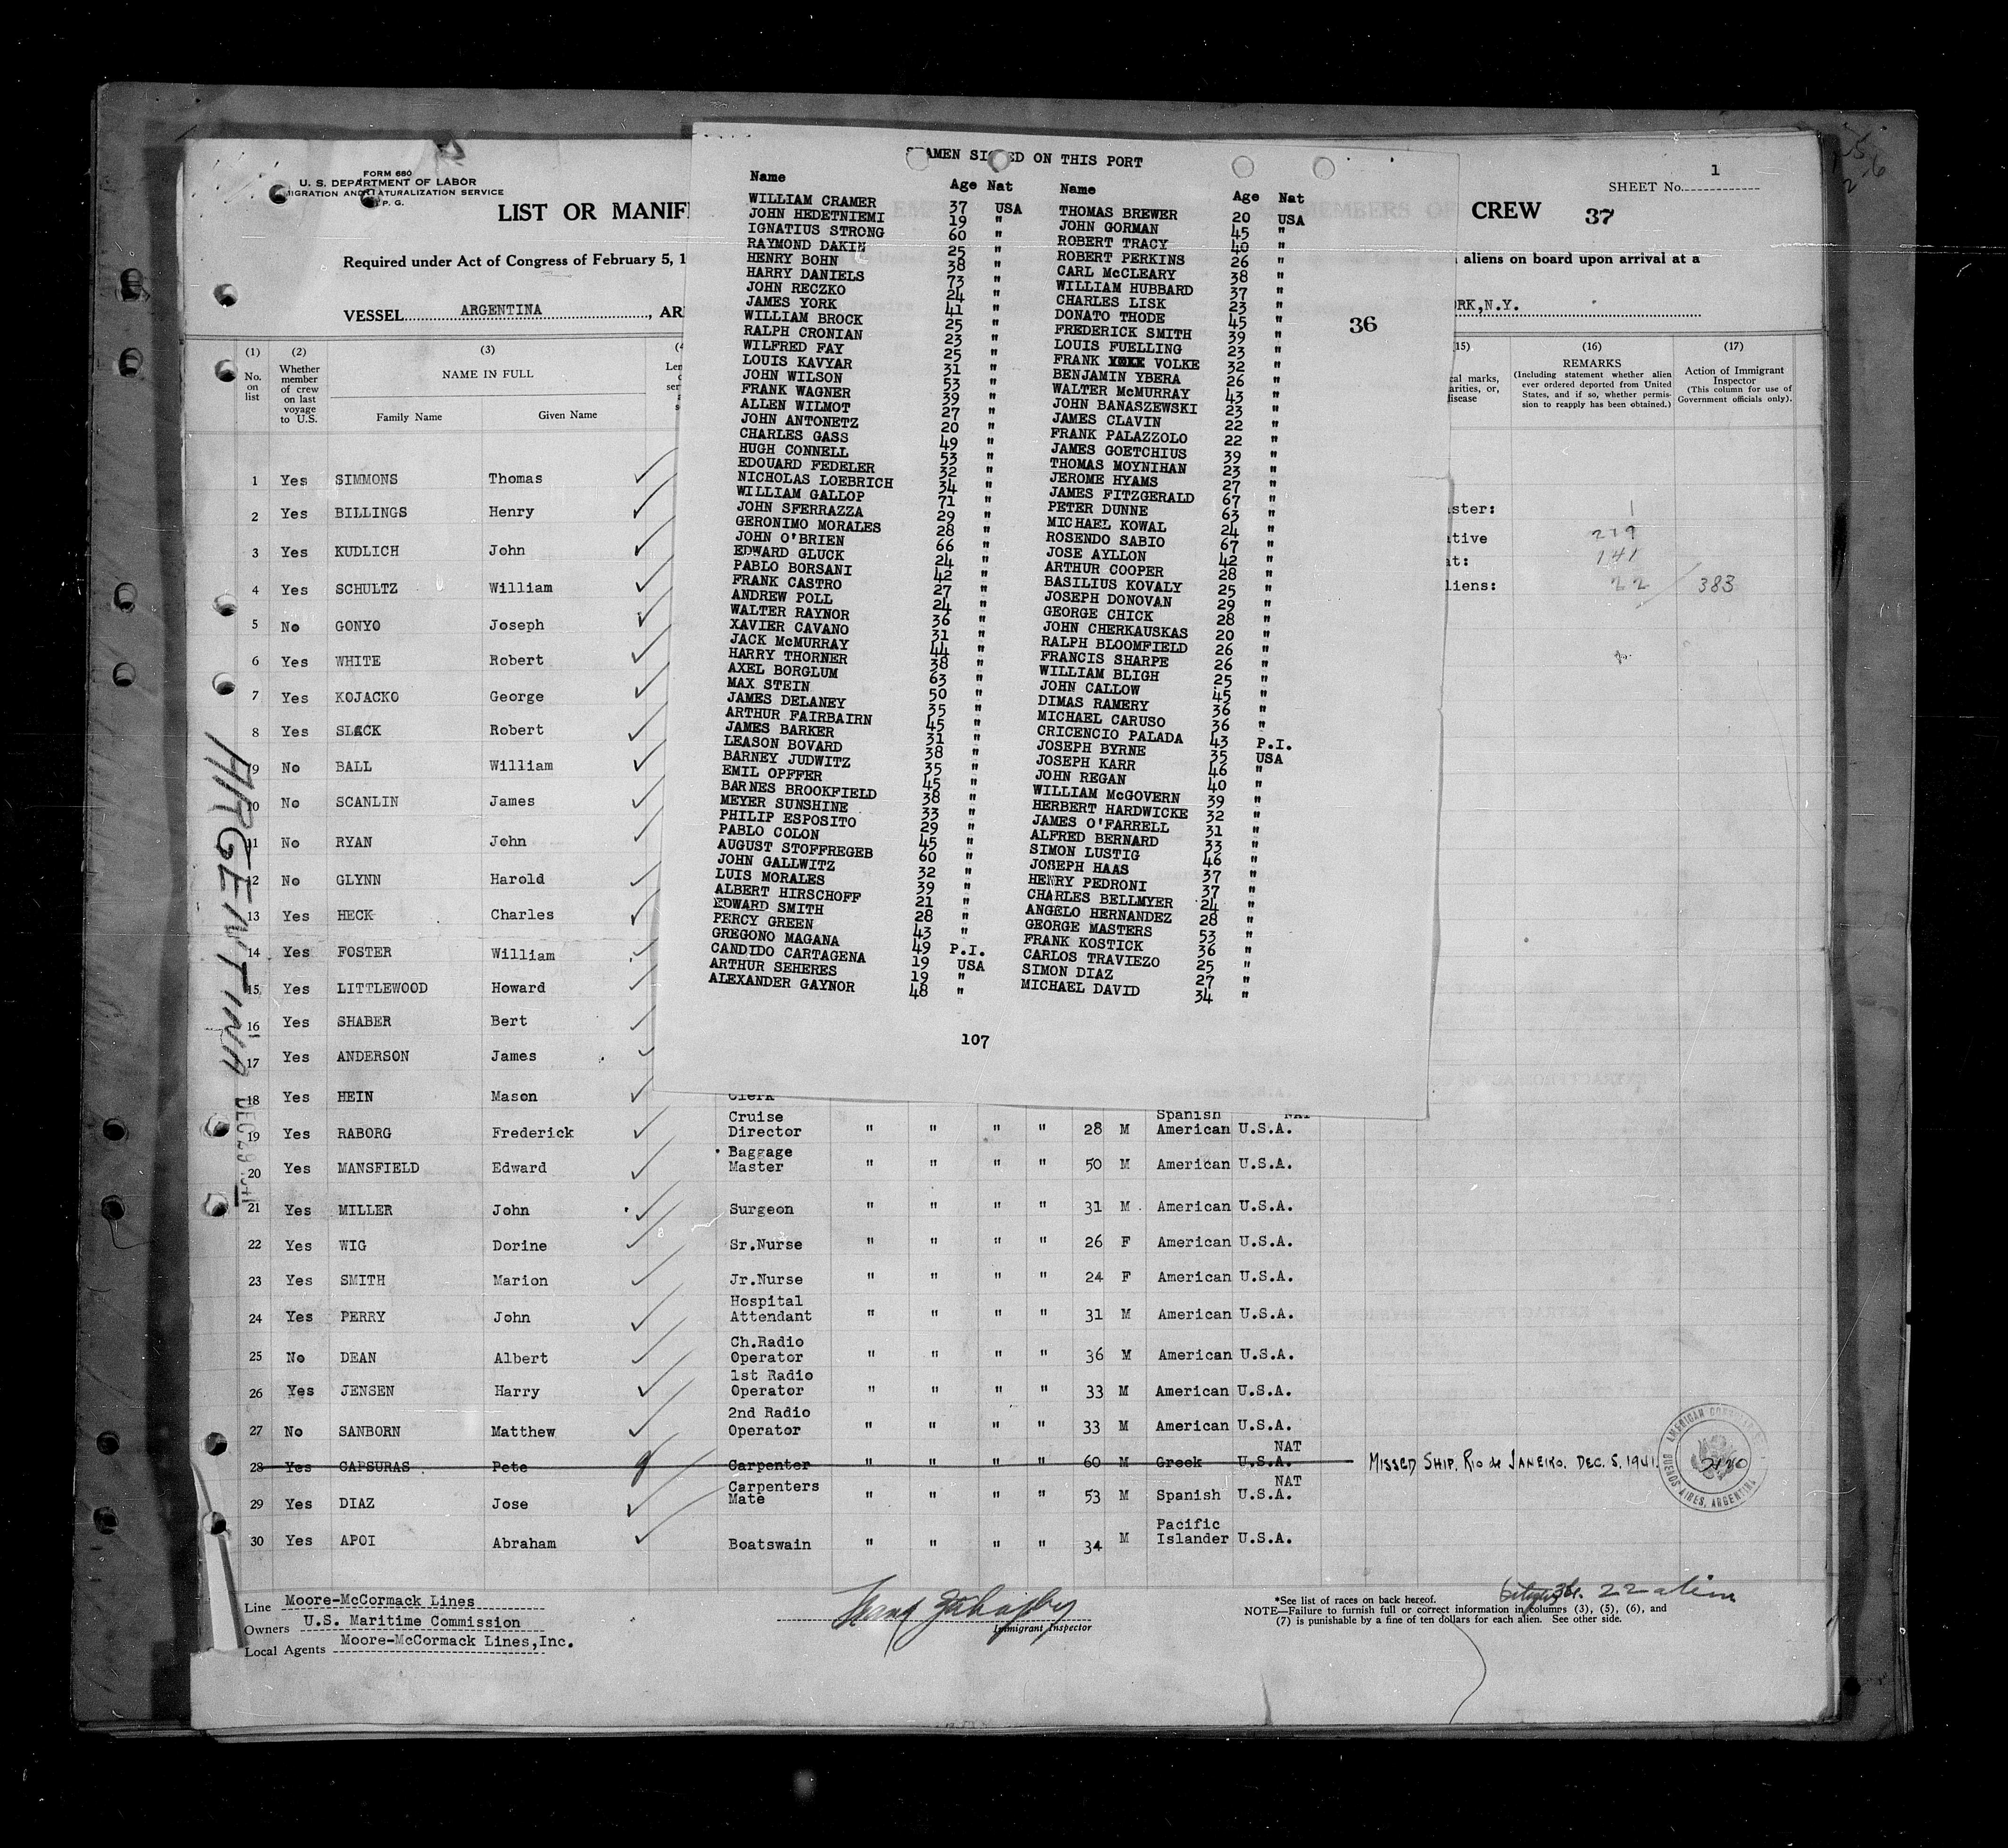 FORM 680
U. S. DEPARTMENT OF LABOR
IMMIGRATION AND NATURALIZATION SERVICE
P. G.
SHEET No. 1
LIST OR MANIF
CREW 37
Required under Act of Congress of February 5, 1
aliens on board upon arrival at a
VESSEL ARGENTINA, AR
ORK,N.Y.
(1) No. on list
(2) Whether member of crew on last voyage to U.S.
(3) NAME IN FULL
Family Name Given Name
(16) REMARKS
(Including statement whether alien ever ordered deported from United States, and if so, whether permission to reapply has been obtained.)
(17) Action of Immigrant Inspector
(This column for use of Government officials only).
SEAMEN SIGNED ON THIS PORT
Name Age Nat Name Age Nat
WILLIAM CRAMER 37 USA THOMAS BREWER 20 USA
JOHN HEDETNIEMI 19 " JOHN GORMAN 45 "
IGNATIUS STRONG 60 " ROBERT TRACY 40 "
RAYMOND DAKIN 25 " ROBERT PERKINS 26 "
HENRY BOHN 38 " CARL McCLEARY 38 "
HARRY DANIELS 73 " WILLIAM HUBBARD 37 "
JOHN RECZKO 24 " CHARLES LISK 23 "
JAMES YORK 41 " DONATO THODE 45 "
WILLIAM BROCK 25 " FREDERICK SMITH 39 "
RALPH CRONIAN 23 " LOUIS FUELLING 23 "
WILFRED FAY 25 " FRANK VOLKE 32 "
LOUIS KAVYAR 31 " BENJAMIN YBERA 26 "
JOHN WILSON 53 " WALTER McMURRAY 43 "
FRANK WAGNER 39 " JOHN BANASZEWSKI 23 "
ALLEN WILMOT 27 " JAMES CLAVIN 22 "
JOHN ANTONETZ 20 " FRANK PALAZZOLO 22 "
CHARLES GASS 49 " JAMES GOETCHIUS 39 "
HUGH CONNELL 53 " THOMAS MOYNIHAN 23 "
EDOUARD FEDELER 32 " JEROME HYAMS 27 "
NICHOLAS LOEBRICH 34 " JAMES FITZGERALD 67 "
WILLIAM GALLOP 71 " PETER DUNNE 63 "
JOHN SFERRAZZA 29 " MICHAEL KOWAL 24 "
GERONIMO MORALES 28 " ROSENDO SABIO 67 "
JOHN O'BRIEN 66 " JOSE AYLLON 42 "
EDWARD GLUCK 24 " ARTHUR COOPER 28 "
PABLO BORSANI 42 " BASILIUS KOVALY 25 "
FRANK CASTRO 27 " JOSEPH DONOVAN 29 "
ANDREW POLL 24 " GEORGE CHICK 28 "
WALTER RAYNOR 36 " JOHN CHERKAUSKAS 20 "
XAVIER CAVANO 31 " RALPH BLOOMFIELD 26 "
JACK McMURRAY 44 " FRANCIS SHARPE 26 "
HARRY THORNER 38 " WILLIAM BLIGH 25 "
AXEL BORGLUM 63 " JOHN CALLOW 45 "
MAX STEIN 50 " DIMAS RAMERY 36 "
JAMES DELANEY 35 " MICHAEL CARUSO 36 "
ARTHUR FAIRBAIRN 45 " CRICENCIO PALADA 43 P.I.
JAMES BARKER 31 " JOSEPH BYRNE 35 USA
LEASON BOVARD 38 " JOSEPH KARR 46 "
BARNEY JUDWITZ 35 " JOHN REGAN 40 "
EMIL OPFFER 45 " WILLIAM McGOVERN 39 "
BARNES BROOKFIELD 38 " HERBERT HARDWICKE 32 "
MEYER SUNSHINE 33 " JAMES O'FARRELL 31 "
PHILIP ESPOSITO 29 " ALFRED BERNARD 33 "
PABLO COLON 45 " SIMON LUSTIG 46 "
AUGUST STOFFREGEB 60 " JOSEPH HAAS 37 "
JOHN GALLWITZ 32 " HENRY PEDRONI 37 "
LUIS MORALES 39 " CHARLES BELLMYER 24 "
ALBERT HIRSCHOFF 21 " ANGELO HERNANDEZ 28 "
EDWARD SMITH 28 " GEORGE MASTERS 53 "
PERCY GREEN 43 " FRANK KOSTICK 36 "
GREGONO MAGANA 49 P.I. CARLOS TRAVIEZO 25 "
CANDIDO CARTAGENA 19 USA SIMON DIAZ 27 "
ARTHUR SEHERES 19 " MICHAEL DAVID 34 "
ALEXANDER GAYNOR 48 "
107
36
ster: 1
tive 219
t: 141
liens: 22 / 383
1 Yes SIMMONS Thomas
2 Yes BILLINGS Henry
3 Yes KUDLICH John
4 Yes SCHULTZ William
5 No GONYO Joseph
6 Yes WHITE Robert
7 Yes KOJACKO George
8 Yes SLACK Robert
9 No BALL William
10 No SCANLIN James
11 No RYAN John
12 No GLYNN Harold
13 Yes HECK Charles
14 Yes FOSTER William
15 Yes LITTLEWOOD Howard
16 Yes SHABER Bert
17 Yes ANDERSON James
18 Yes HEIN Mason Clerk Spanish NAT
19 Yes RABORG Frederick Cruise Director " " " " 28 M American U.S.A.
20 Yes MANSFIELD Edward Baggage Master " " " " 50 M American U.S.A.
21 Yes MILLER John Surgeon " " " " 31 M American U.S.A.
22 Yes WIG Dorine Sr.Nurse " " " " 26 F American U.S.A.
23 Yes SMITH Marion Jr.Nurse " " " " 24 F American U.S.A.
24 Yes PERRY John Hospital Attendant " " " " 31 M American U.S.A.
25 No DEAN Albert Ch.Radio Operator " " " " 36 M American U.S.A.
26 Yes JENSEN Harry 1st Radio Operator " " " " 33 M American U.S.A.
27 No SANBORN Matthew 2nd Radio Operator " " " " 33 M American U.S.A.
28 Yes CAPSURAS Pete Carpenter " " " " 60 M Greek U.S.A. NAT MISSED SHIP. RIO de JANEIRO. DEC. 5, 1941.
29 Yes DIAZ Jose Carpenters Mate " " " " 53 M Spanish U.S.A. NAT
30 Yes APOI Abraham Boatswain " " " " 34 M Pacific Islander U.S.A.
ARGENTINA DEC 29 1941
AMERICAN CONSULATE BUENOS AIRES, ARGENTINA
Line Moore-McCormack Lines
Owners U.S. Maritime Commission
Local Agents Moore-McCormack Lines,Inc.
Immigrant Inspector
22 alien
*See list of races on back hereof.
NOTE—Failure to furnish full or correct information in columns (3), (5), (6), and
(7) is punishable by a fine of ten dollars for each alien. See other side.